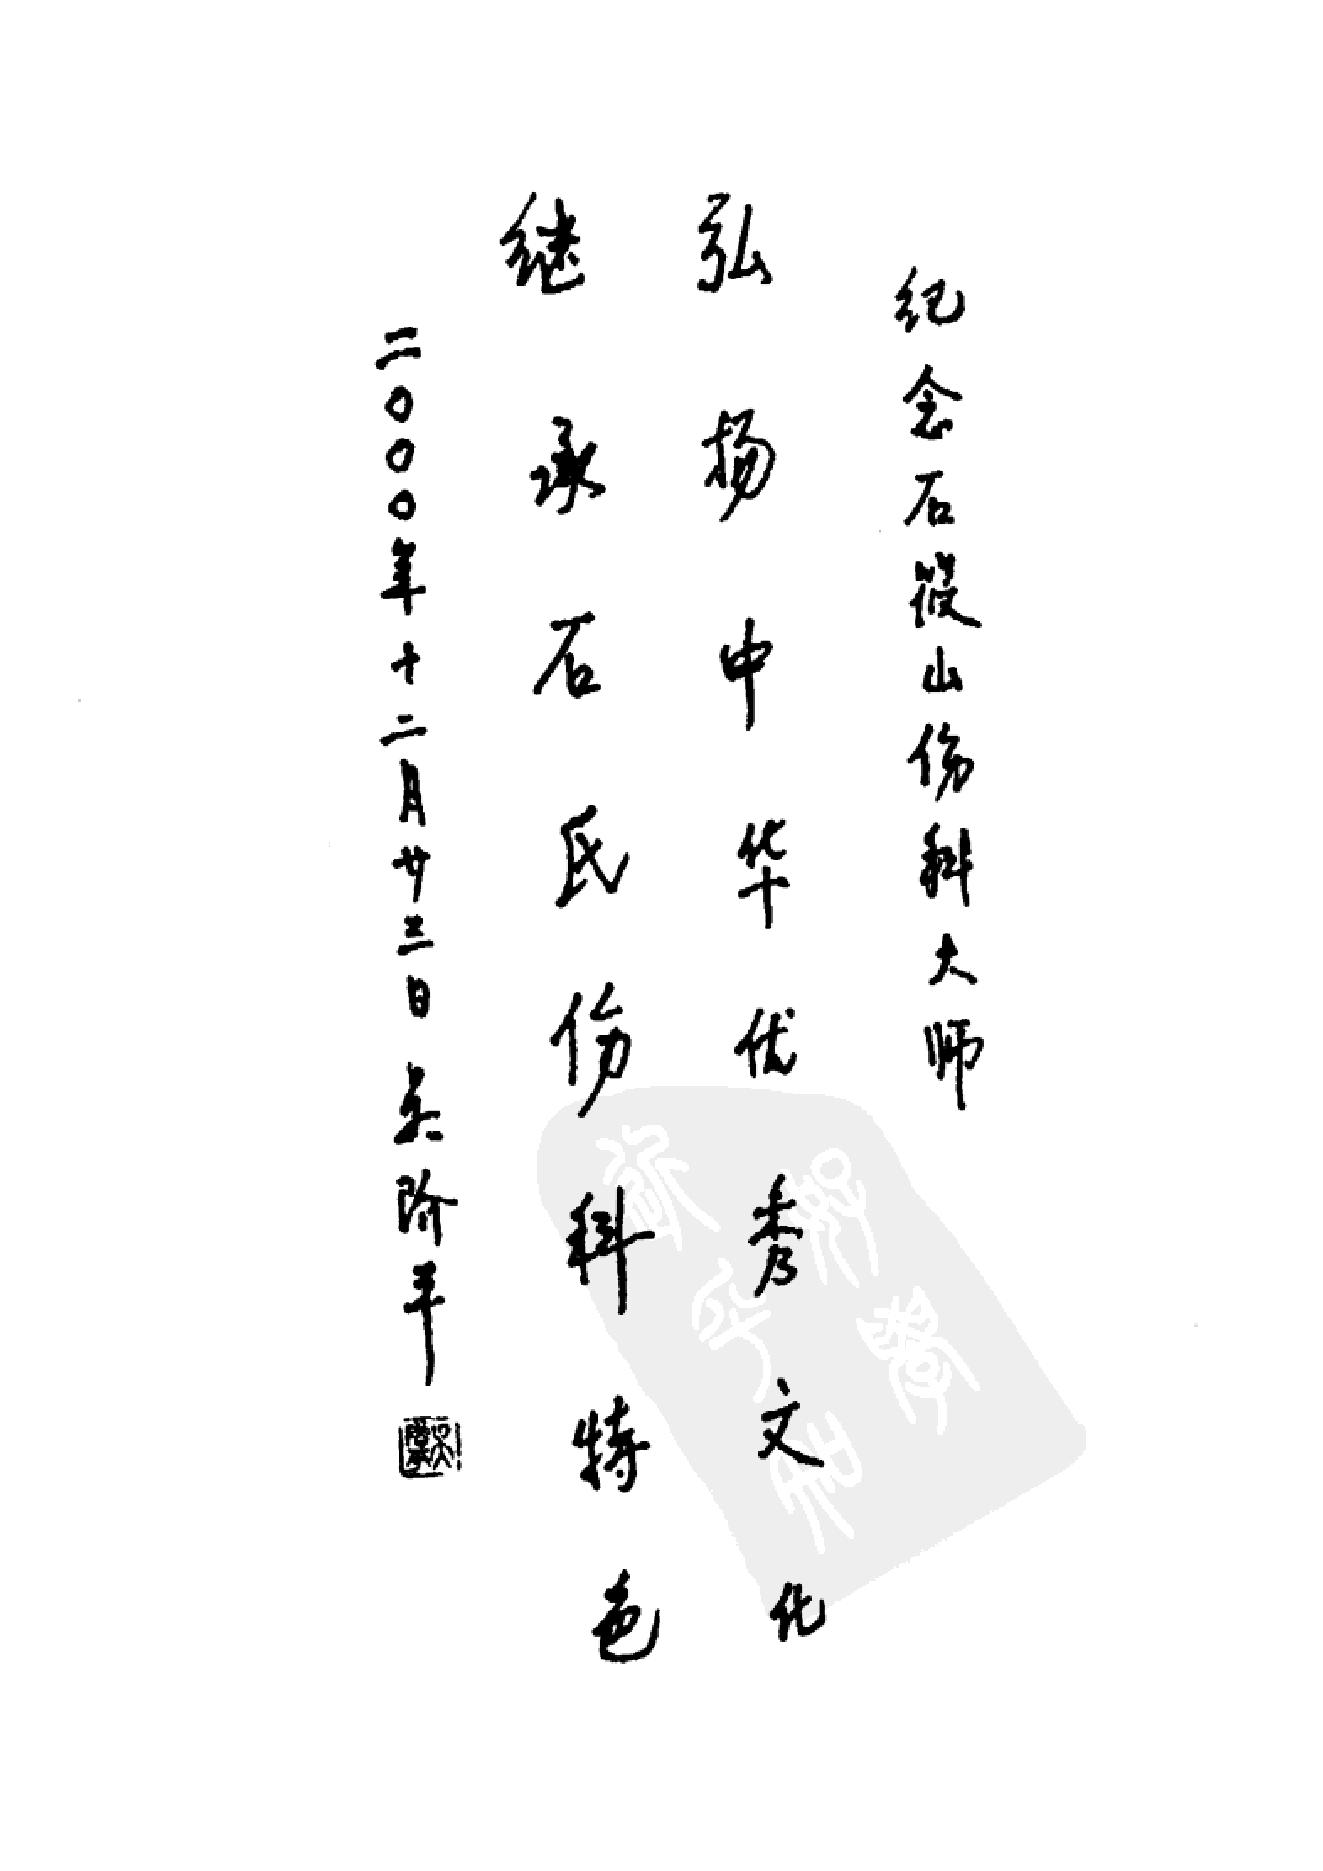 纪念石筱山伤科大师
弘扬中华优秀文化
继承石氏伤科特色
二〇〇〇年十二月廿三日 吴阶平